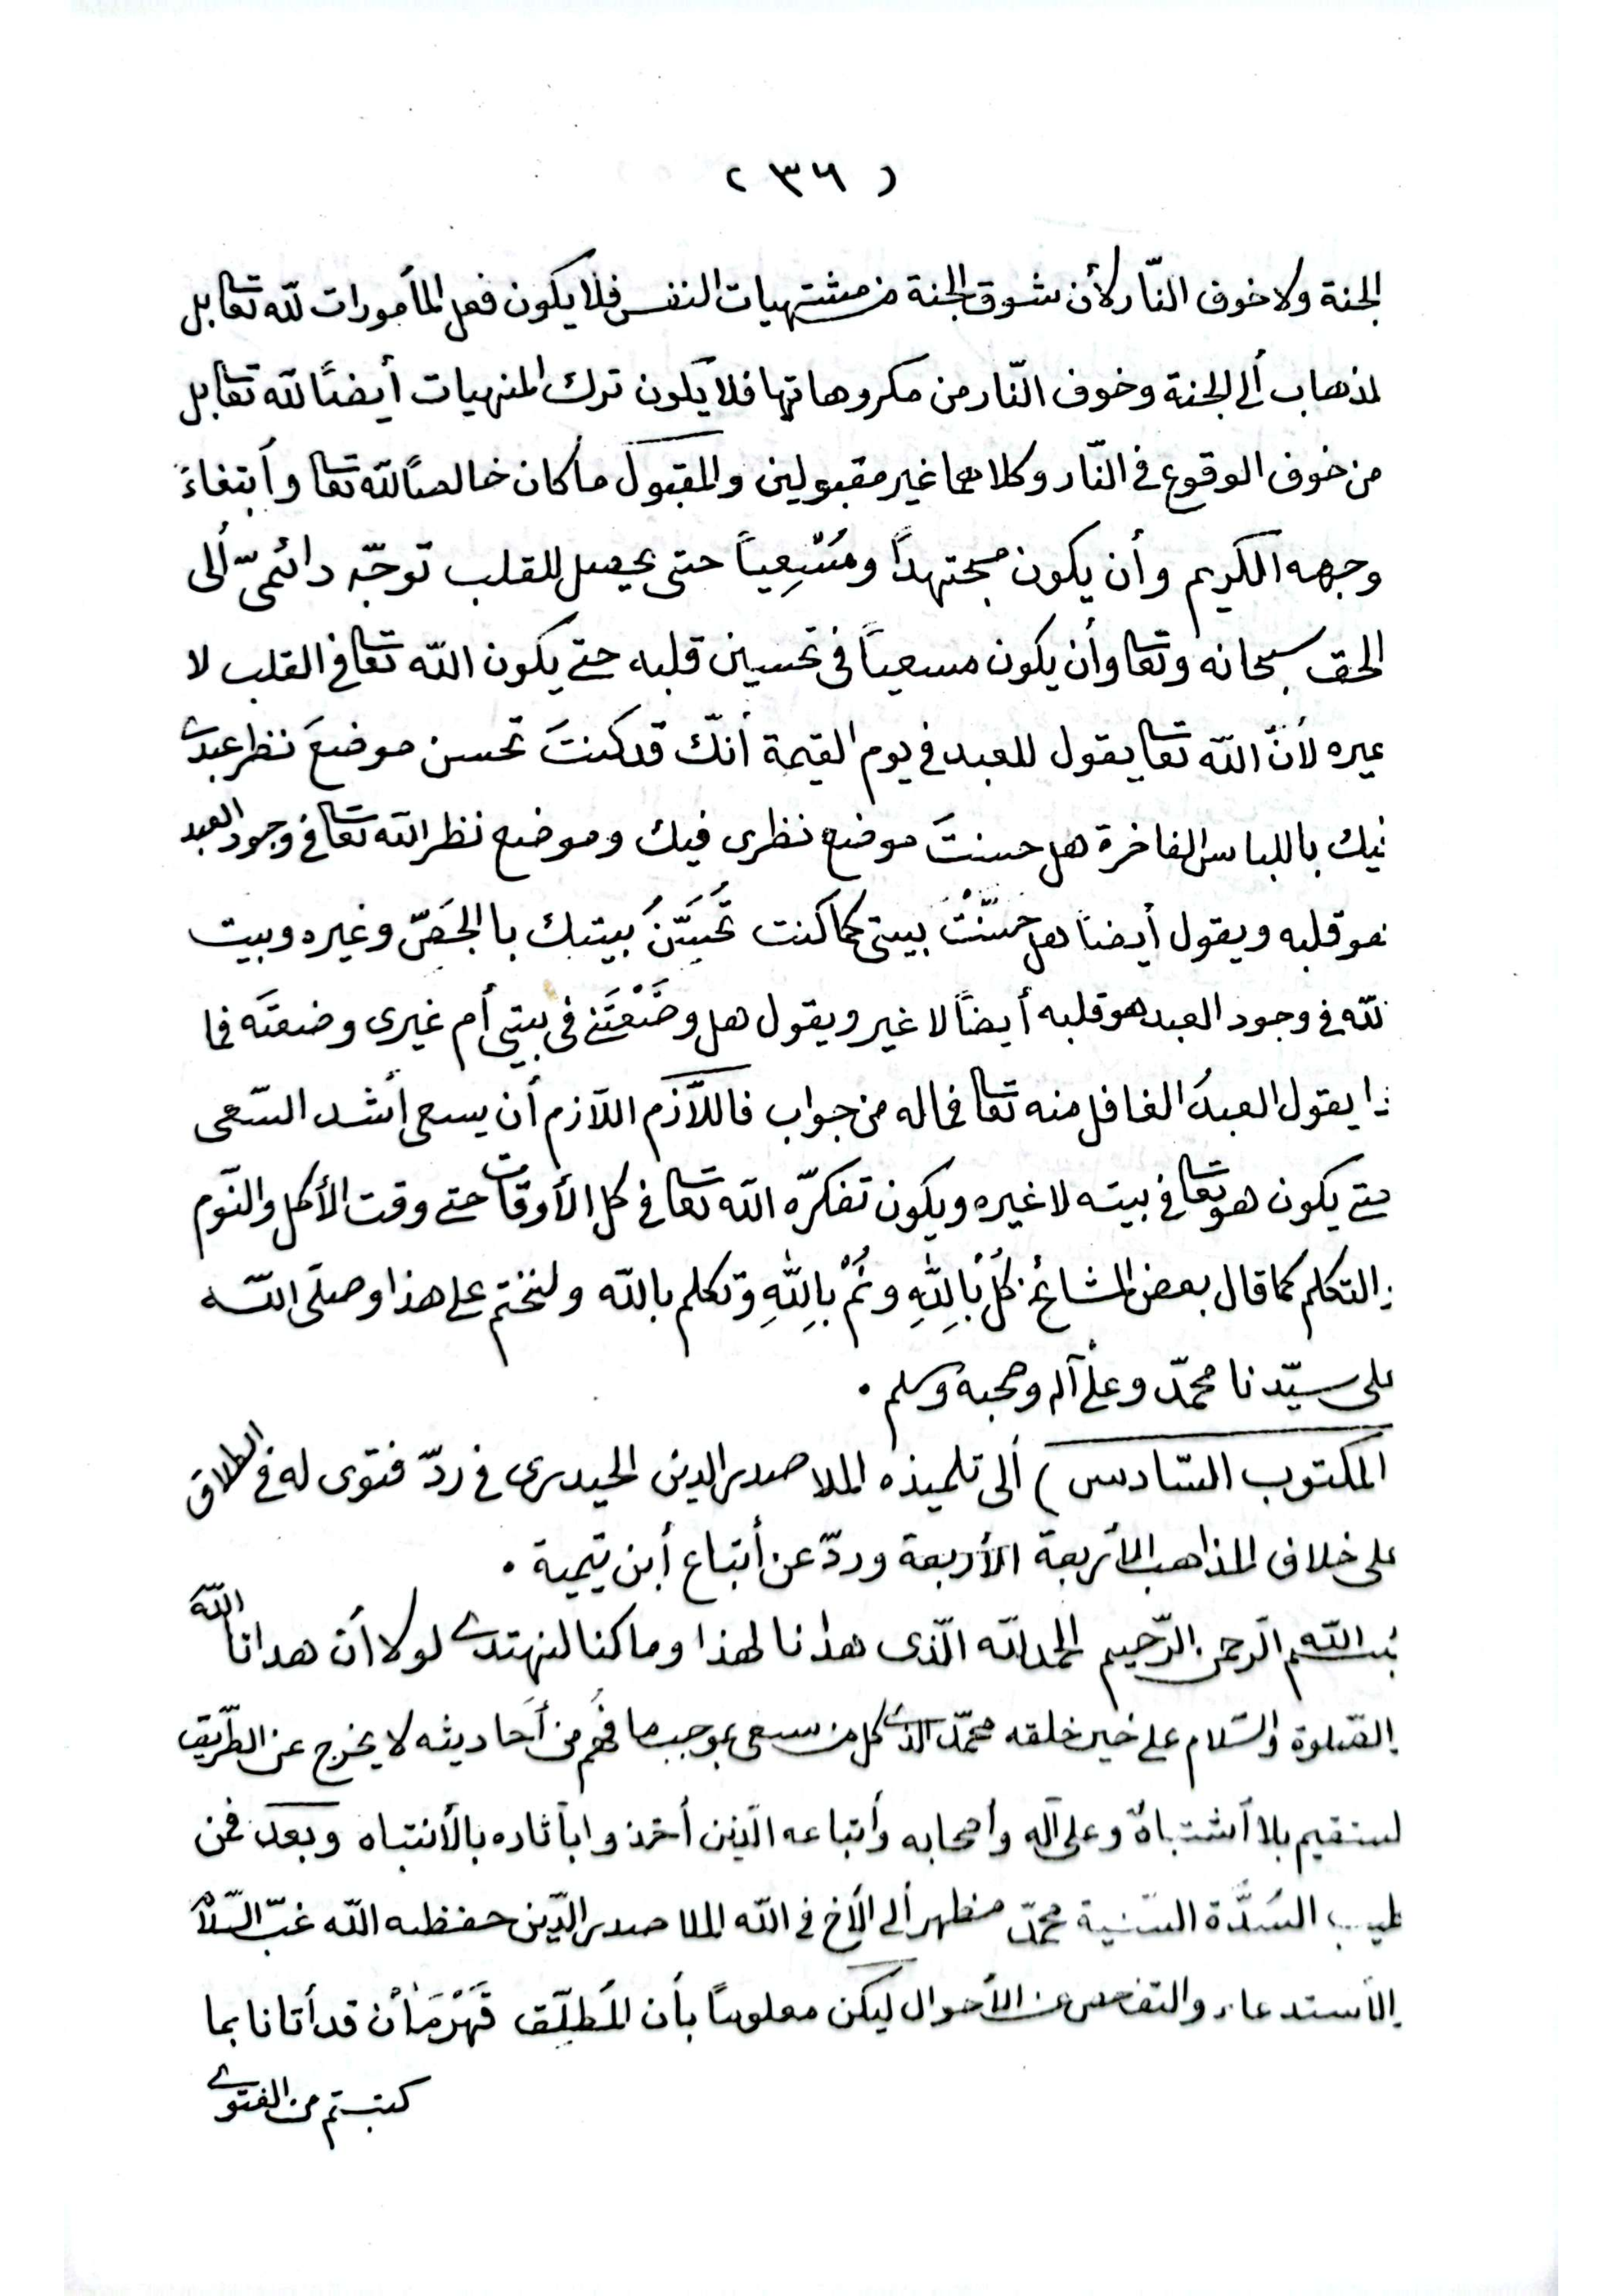 ( ٣٦ )
الجنة ولا خوف النّار لأن شوق الجنة من مشتهيات النفس فلا يكون فعل المأمورات لله تعا بل
لذهاب ألى الجنة وخوف النّار من مكروهاتها فلا يكون ترك المنهيات أيضًا لله تعا بل
من خوف الوقوع في النّار وكلاهما غير مقبولين والمقبول ما كان خالصًا لله تعا وأبتغاءً
وجهه الكريم وأن يكون مجتهداً ومُسْعِياً حتى يحصل للقلب توجّه دائميّ ألى
الحق سبحانه وتعا وأن يكون مسعياً في تحسين قلبه حتى يكون الله تعا في القلب لا
غيره لأنّ الله تعا يقول للعبد في يوم القيمة أنّك قد كنتَ تحسن موضعَ نظر عبدى
فيك باللباس الفاخرة هل حسنتَ موضع نظرى فيك وموضع نظر الله تعا في وجود العبد
هو قلبه ويقول أيضاً هل حَسَّنْتَ بيتى كما كنت تُحَسِّنُ بيتك بالجَصّ وغيره وبيت
لله في وجود العبد هو قلبه أيضاً لا غير ويقول هل وضَعْتَنى في بيتى أم غيرى وضعتَه فما
ذا يقول العبدُ الغافل منه تعا فما له من جواب فاللاّزم اللاّزم أن يسعى أشد السّعى
حتى يكون هو تعا في بيته لا غيره ويكون تفكرّه الله تعا في كل الأوقات حتى وقت الأكل والنّوم
والتكلم كما قال بعض المشائخ كُلْ بِاللهِ ونُمْ بِاللهِ وتكلم بالله ولنختم على هذا وصلّى الله
على سيّدنا محمّد وعلى آله وصحبه وسلم .
المكتوب السّادس ) ألى تلميذه الملا صدر الدين الحيدرى في ردّ فتوى له في الطلاق
على خلاف المذاهب الأربعة الأربعة وردّ عن أتباع أبن تيمية .
بسم الله الرّحمن الرّحيم الحمد لله الّذى هدانا لهذا وما كنا لنهتدى لولا أن هدانا اللهُ
والصّلوة والسّلام على خير خلقه محمّد الذى كل من سعى بموجب ما فُهم من أحاديثه لا يخرج عن الطّريق
لمستقيم بلا أشتباه وعلى آله وأصحابه وأتباعه الّذين أخذوا بآثاره بالأنتباه وبعد فمن
السُدَّة السّنية محمّد مظهر ألى الأخ في الله الملا صدر الدّين حفظه الله غبّ السّلام
والأستدعاء والتفاحص عن الأحوال ليكن معلوماً بأن المُطلِّق قَهْرَمَانْ قد أتانا بما
كتبتم من الفتوى